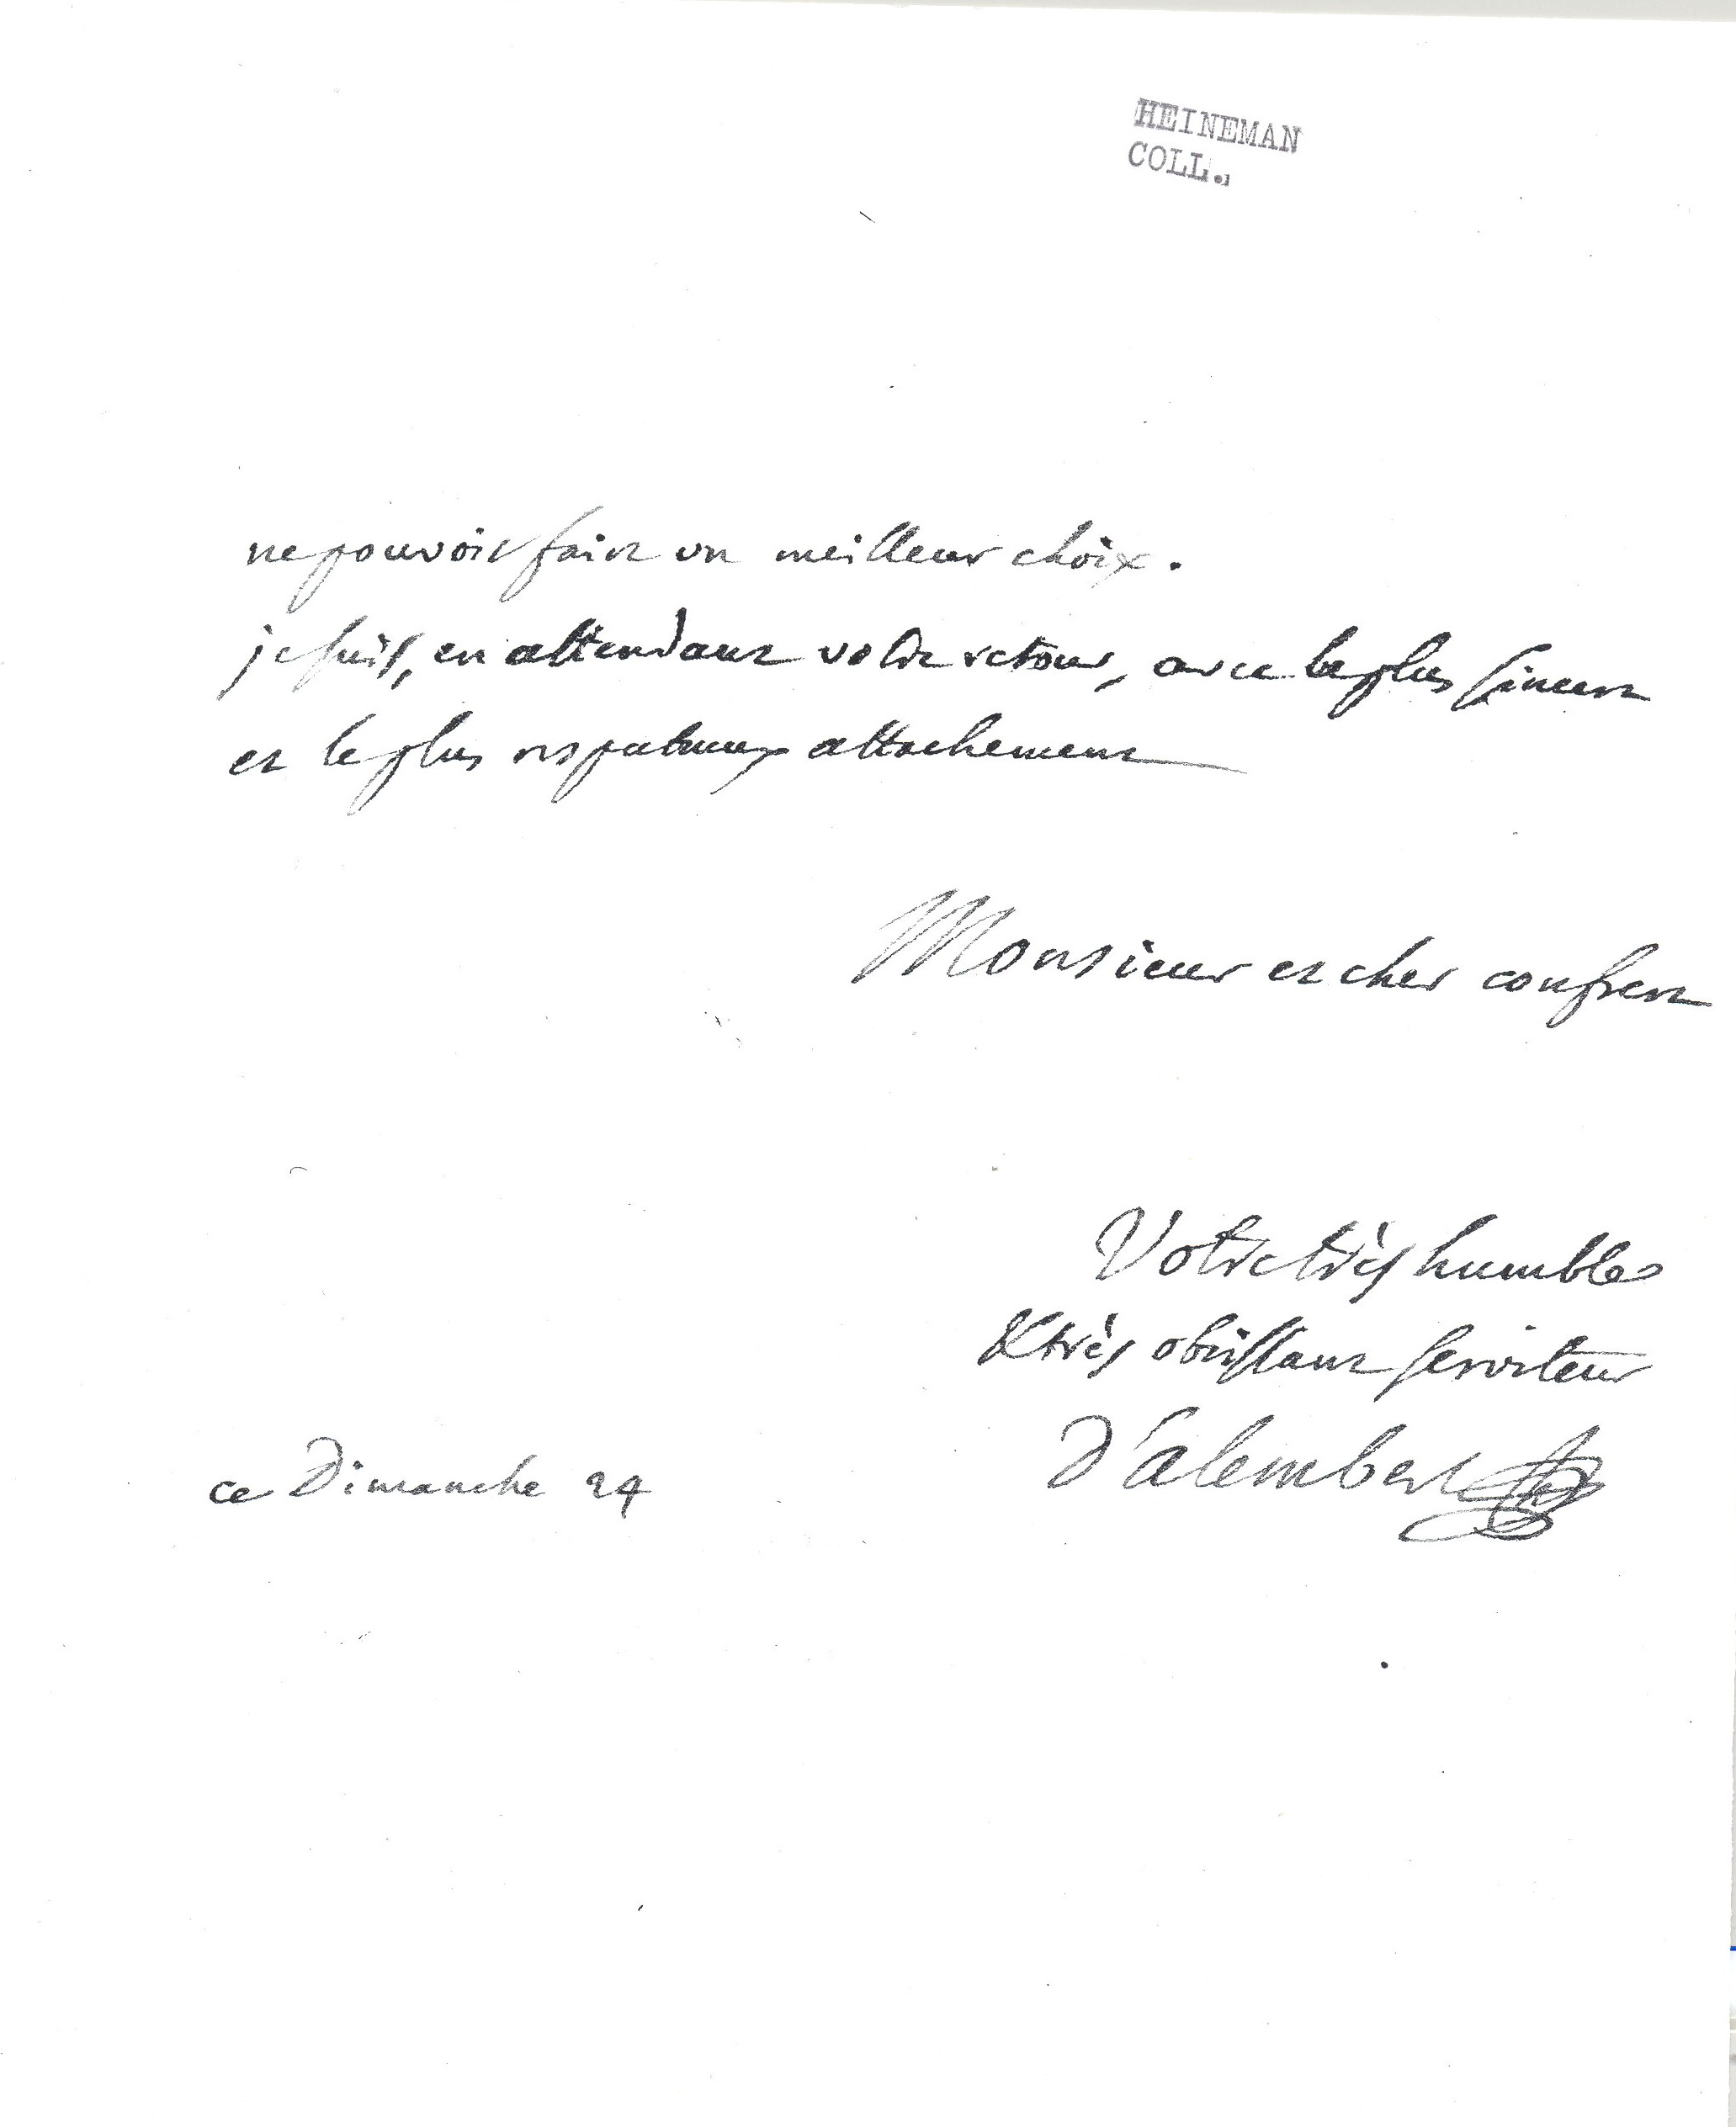 HEINEMAN
COLL.
ne pouvoir faire un meilleur choix.
je suis, en attendant votre retour, avec le plus sincere
et le plus respectueux attachement
Monsieur et cher confrere
Votre très humble
& très obéissant serviteur
D'alembert
ce Dimanche 24